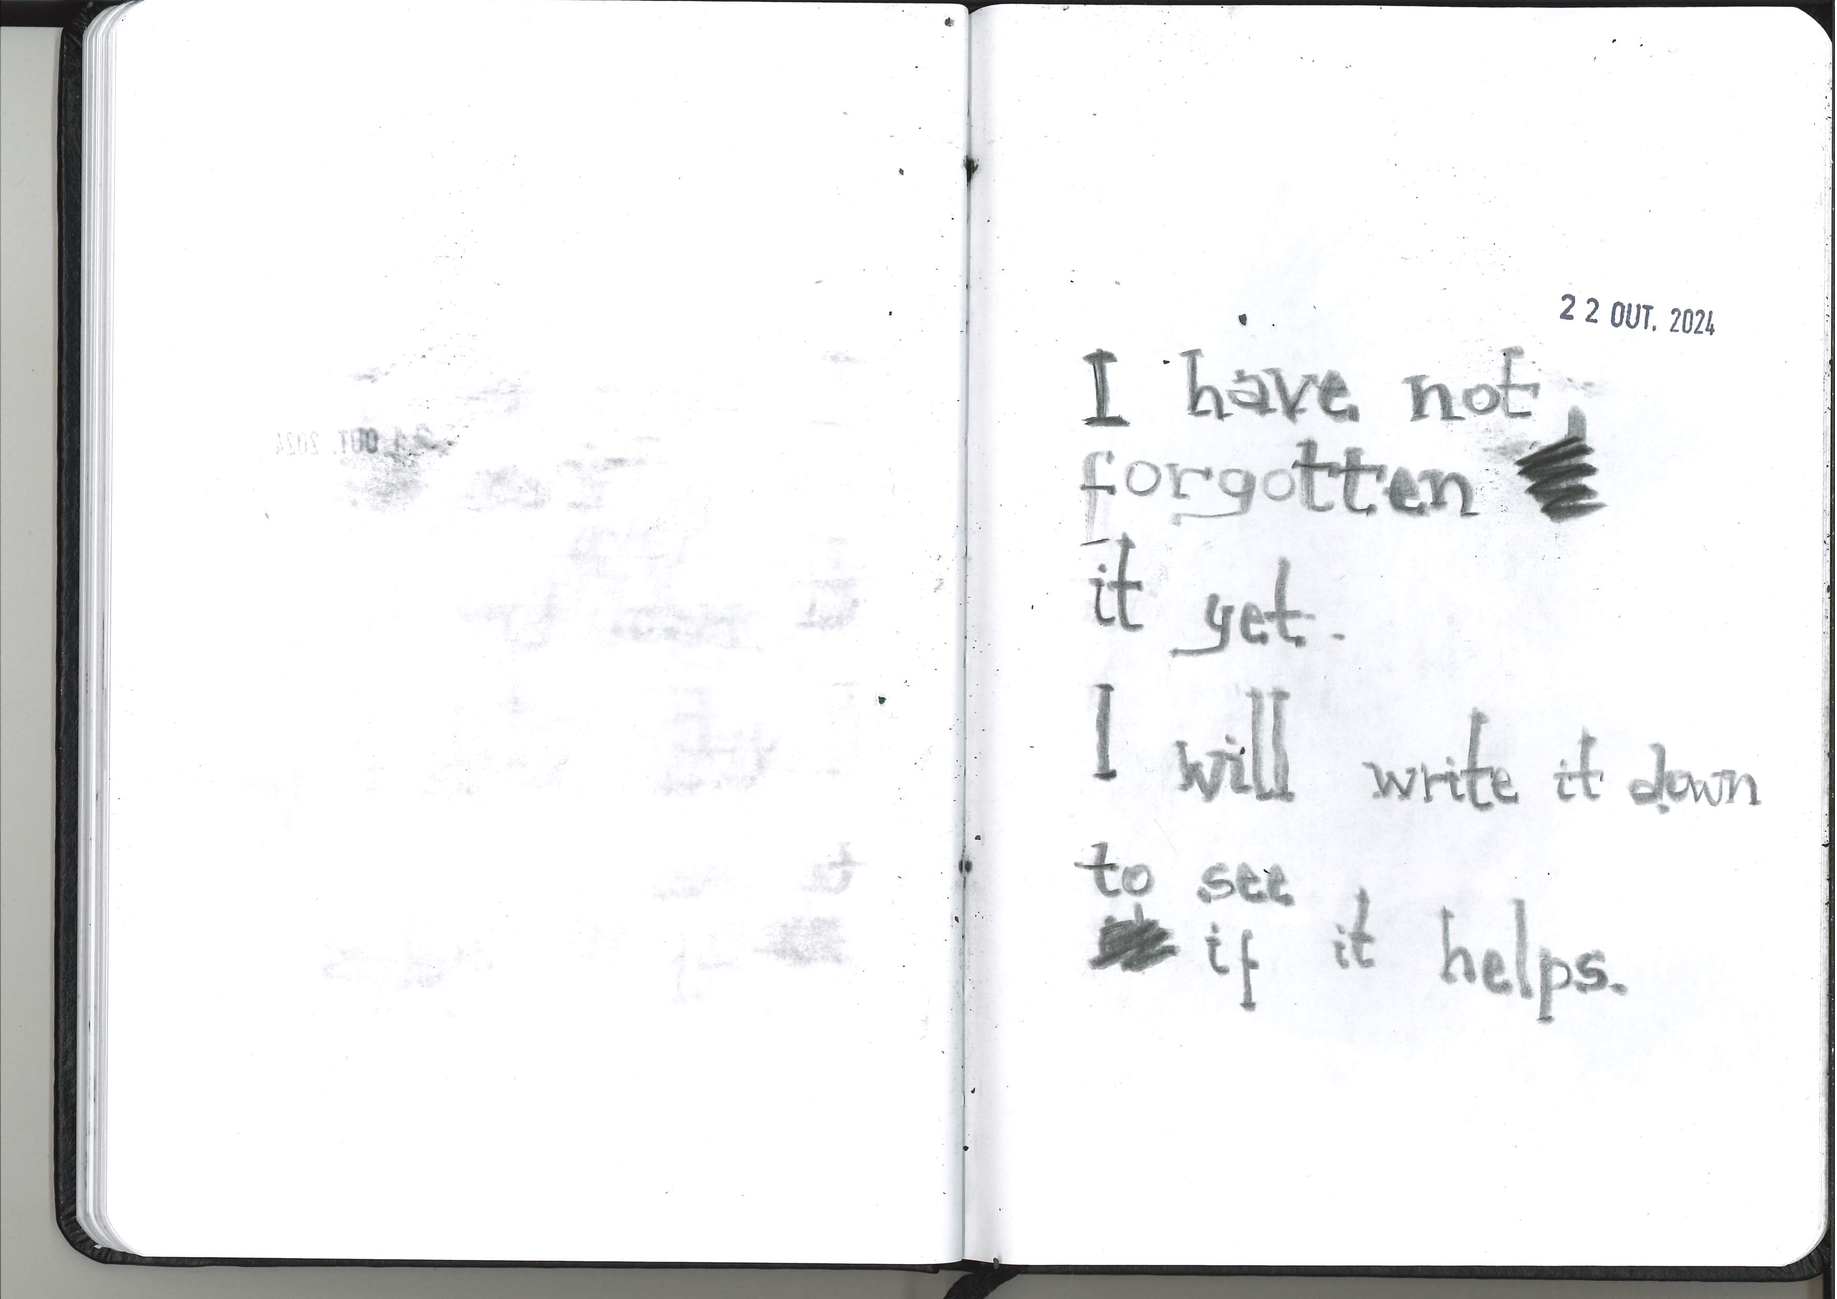 22 OUT. 2024
I have not
forgotten
it yet.
I will write it down
to see
if it helps.